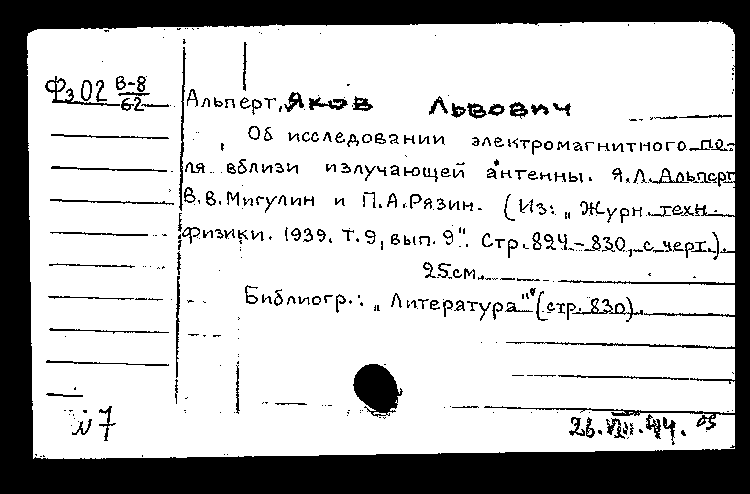 Фз02 В-8
62
Альперт, Яков Львович
Об исследовании электромагнитного по-
ля вблизи излучающей антенны. Я.Л.Альперт
В.В.Мигулин и П.А.Рязин. (Из: „Журн. техн.
физики. 1939. Т.9, вып. 9". Стр. 824-830, с черт.).
25см.
Библиогр.: „Литература" (стр. 830).
и7
26. VIII. 44.